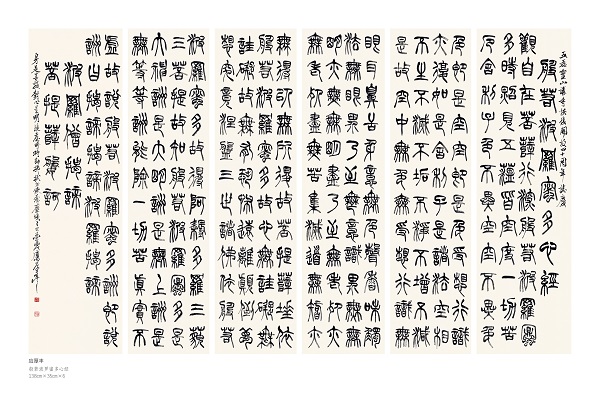 般若波羅蜜多心經
觀自在菩薩行深般若波羅蜜
多時照見五蘊皆空度一切苦
厄舍利子色不異空空不異色
色即是空空即是色受想行識
亦復如是舍利子是諸法空相
不生不滅不垢不淨不增不減
是故空中無色無受想行識無
眼耳鼻舌身意無色聲香味觸
法無眼界乃至無意識界無無
明亦無無明盡乃至無老死亦
無老死盡無苦集滅道無智亦
無得以無所得故菩提薩埵依
般若波羅蜜多故心無罣礙無
罣礙故無有恐怖遠離顛倒夢
想究竟涅槃三世諸佛依般若
波羅蜜多故得阿耨多羅三藐
三菩提故知般若波羅蜜多是
大神咒是大明咒是無上咒是
無等等咒能除一切苦真實不
虛故說般若波羅蜜多咒即說
咒曰揭諦揭諦波羅揭諦
波羅僧揭諦
菩提薩婆訶
般若波罗蜜多心经
138cm×35cm×6